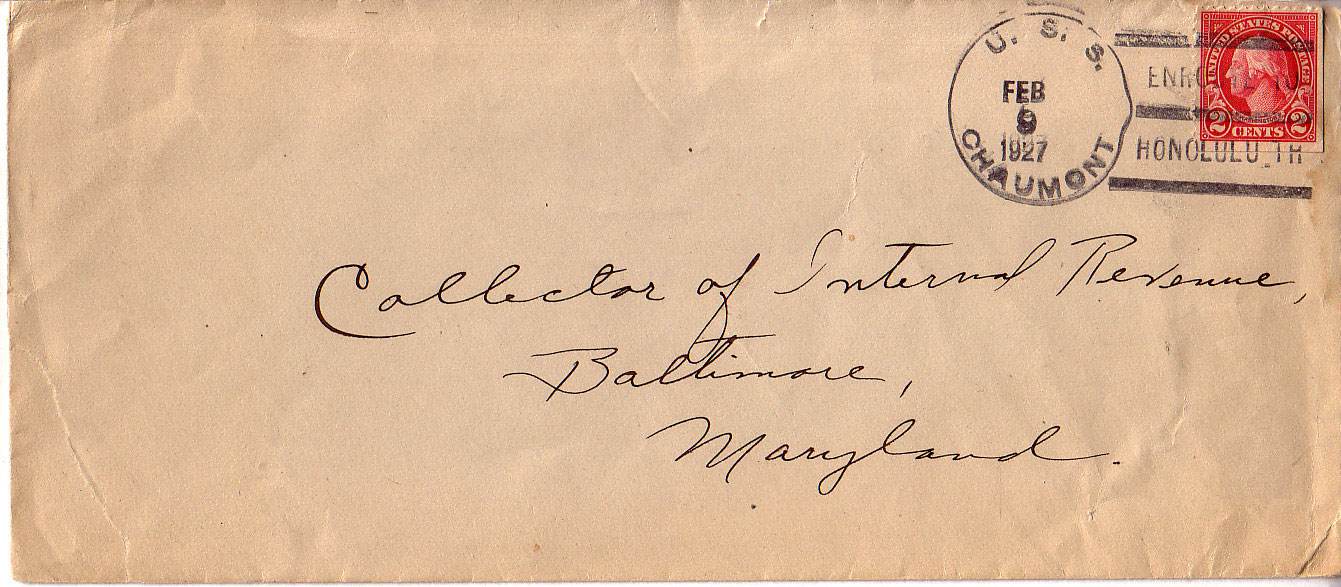 U. S. S.
FEB
9
1927
CHAUMONT
HONOLULU TH
UNITED STATES POSTAGE
2 CENTS 2
Collector of Internal Revenue,
Baltimore,
Maryland.